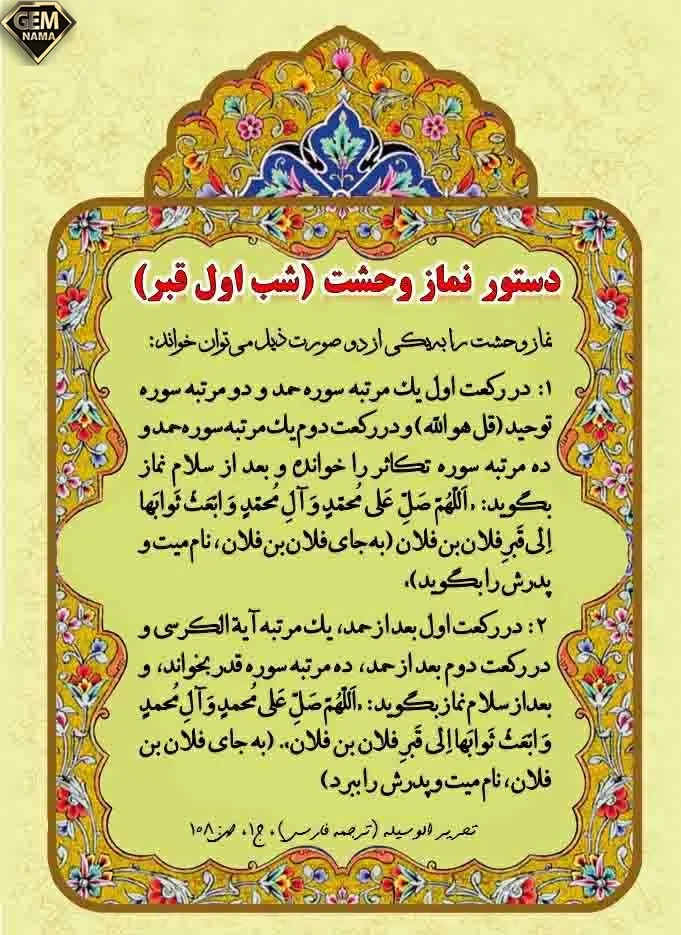 GEM
NAMA
دستور نماز وحشت (شب اول قبر)
نماز وحشت را به یکی از دو صورت ذیل می‌توان خواند:
۱: در رکعت اول یك مرتبه سوره حمد و دو مرتبه سوره
توحید (قل هو الله) و در رکعت دوم یك مرتبه سوره حمد و
ده مرتبه سوره تکاثر را خوانده و بعد از سلام نماز
بگوید: «اَللّهُمَّ صَلِّ عَلی مُحمّدٍ وَ آلِ مُحمّدٍ وَ ابَعَثْ ثَوابَها
اِلی قَبرِ فلان بن فلان (به جای فلان بن فلان، نام میت و
پدرش را بگوید)».
۲: در رکعت اول بعد از حمد، یك مرتبه آیة الکرسی و
در رکعت دوم بعد از حمد، ده مرتبه سوره قدر بخواند، و
بعد از سلام نماز بگوید: «اَللّهُمَّ صَلِّ عَلی مُحمدٍ وَ آلِ مُحمدٍ
وَ ابَعَثْ ثَوابَها اِلی قَبرِ فلان بن فلان». (به جای فلان بن
فلان، نام میت و پدرش را ببرد)
تحریر الوسیله (ترجمه فارسی)، ج۱، ص۱۵۸